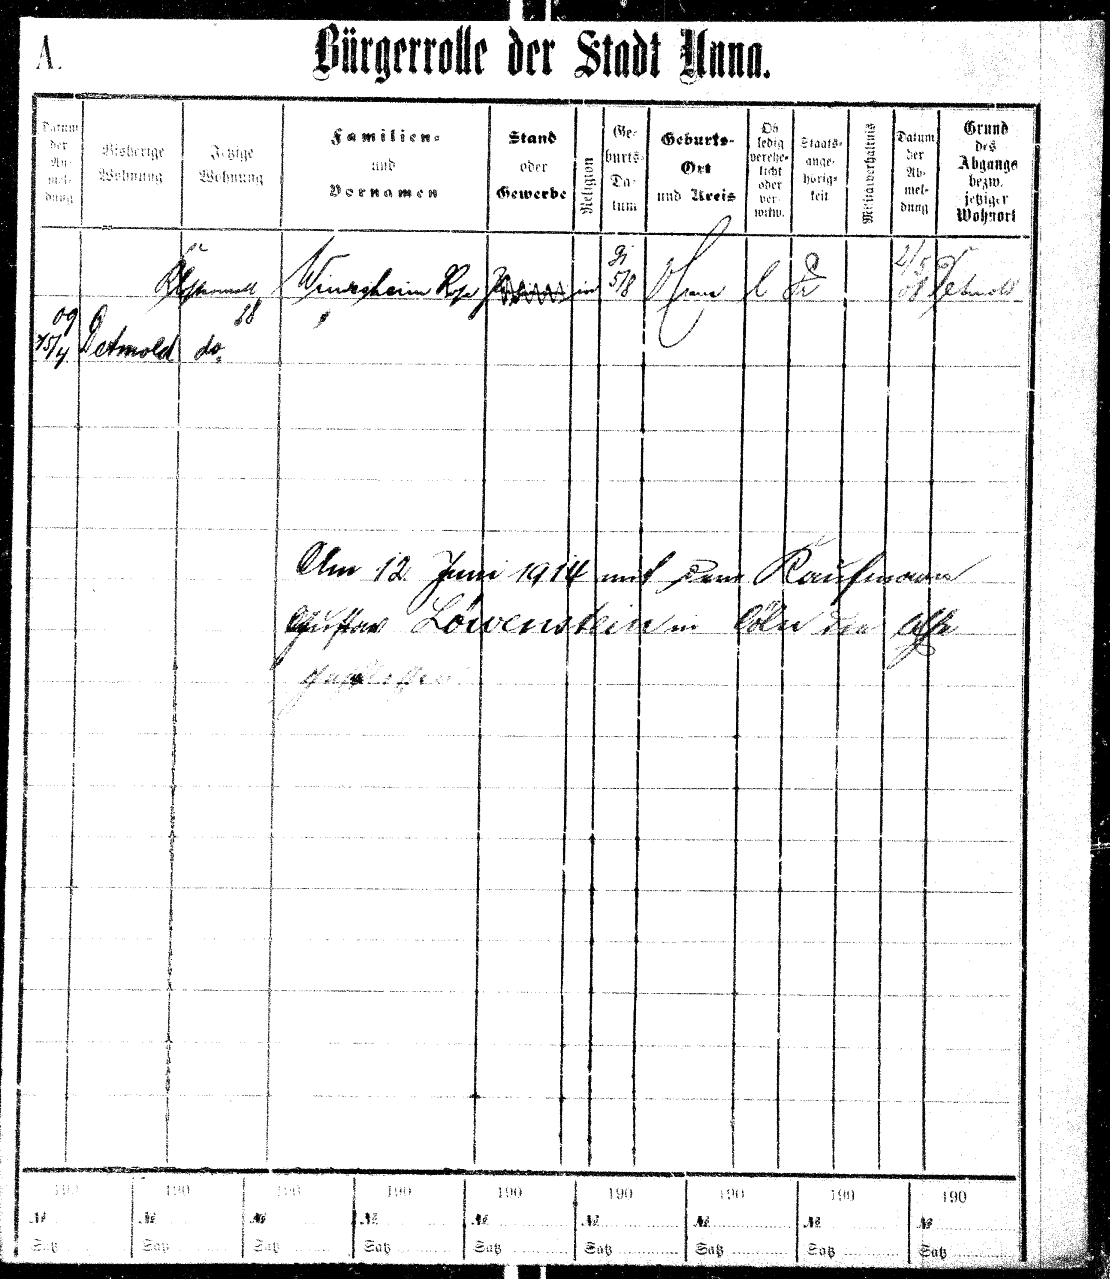 A.
Bürgerrolle der Stadt Unna.
Datum der An- mel- dung
Bisherige Wohnung
Jetzige Wohnung
Familien- und Vornamen
Stand oder Gewerbe
Religion
Ge- burts- Da- tum
Geburts- Ort und Kreis
Ob ledig verehe- licht oder ver- witw.
Staats- ange- hörig- keit
Militärverhältnis
Datum der Ab- mel- dung
Grund des Abgangs bezw. jetziger Wohnort
91
2/5
5/8 Unna l Pr 08 Detmold
88
09
15/4 Detmold do
Am 12. Juni 1914 mit dem Kaufmann
Gustav Löwenstein in Cöln die Ehe
geschlossen
190 190 190 190 190 190 190 190 190
№ № № № № № № № №
Satz Satz Satz Satz Satz Satz Satz Satz Satz